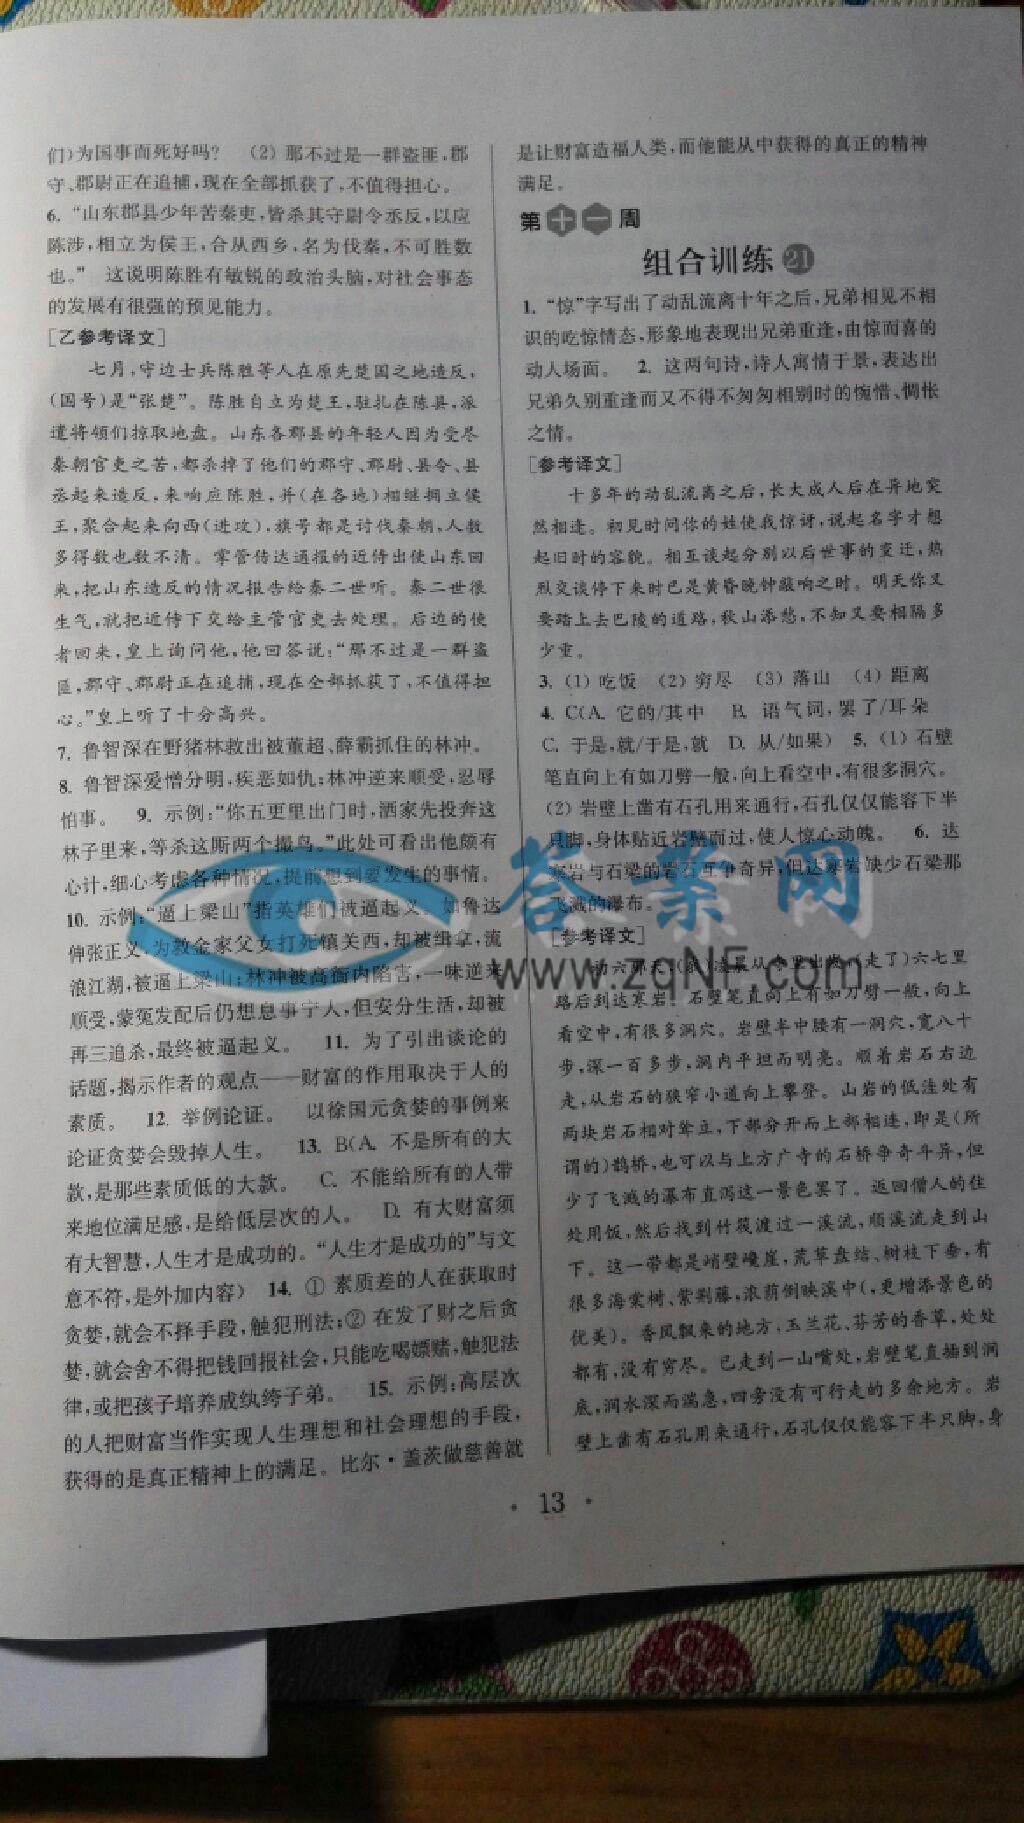 们)为国事而死好吗? (2) 那不过是一群盗匪,郡
守、郡尉正在追捕,现在全部抓获了,不值得担心。
6. “山东郡县少年苦秦吏,皆杀其守尉令丞反,以应
陈涉,相立为侯王,合从西乡,名为伐秦,不可胜数
也。” 这说明陈胜有敏锐的政治头脑,对社会事态
的发展有很强的预见能力。
[乙参考译文]
七月,守边士兵陈胜等人在原先楚国之地造反,
(国号)是“张楚”。陈胜自立为楚王,驻扎在陈县,派
遣将领们掠取地盘。山东各郡县的年轻人因为受尽
秦朝官吏之苦,都杀掉了他们的郡守、郡尉、县令、县
丞起来造反,来响应陈胜,并(在各地)相继拥立侯
王,聚合起来向西(进攻),旗号都是讨伐秦朝,人数
多得数也数不清。掌管传达通报的近侍出使山东回
来,把山东造反的情况报告给秦二世听。秦二世很
生气,就把近侍下交给主管官吏去处理。后边的使
者回来,皇上询问他,他回答说:“那不过是一群盗
匪,郡守、郡尉正在追捕,现在全部抓获了,不值得担
心。”皇上听了十分高兴。
7. 鲁智深在野猪林救出被董超、薛霸抓住的林冲。
8. 鲁智深爱憎分明,疾恶如仇;林冲逆来顺受,忍辱
怕事。 9. 示例:“你五更里出门时,洒家先投奔这
林子里来,等杀这厮两个撮鸟。”此处可看出他颇有
心计,细心考虑各种情况,提前想到要发生的事情。
10. 示例:“逼上梁山”指英雄们被逼起义。如鲁达
伸张正义,为救金家父女打死镇关西,却被缉拿,流
浪江湖,被逼上梁山;林冲被高衙内陷害,一味逆来
顺受,蒙冤发配后仍想息事宁人,但安分生活,却被
再三追杀,最终被逼起义。 11. 为了引出谈论的
话题,揭示作者的观点——财富的作用取决于人的
素质。 12. 举例论证。 以徐国元贪婪的事例来
论证贪婪会毁掉人生。 13. B(A. 不是所有的大
款,是那些素质低的大款。 C. 不能给所有的人带
来地位满足感,是给低层次的人。 D. 有大财富须
有大智慧,人生才是成功的。“人生才是成功的”与文
意不符,是外加内容) 14. ① 素质差的人在获取时
贪婪,就会不择手段,触犯刑法;② 在发了财之后贪
婪,就会舍不得把钱回报社会,只能吃喝嫖赌,触犯法
律,或把孩子培养成纨绔子弟。 15. 示例:高层次
的人把财富当作实现人生理想和社会理想的手段,
获得的是真正精神上的满足。比尔·盖茨做慈善就
是让财富造福人类,而他能从中获得的真正的精神
满足。
第十一周
组合训练21
1. “惊”字写出了动乱流离十年之后,兄弟相见不相
识的吃惊情态,形象地表现出兄弟重逢,由惊而喜的
动人场面。 2. 这两句诗,诗人寓情于景,表达出
兄弟久别重逢而又不得不匆匆相别时的惋惜、惆怅
之情。
[参考译文]
十多年的动乱流离之后,长大成人后在异地突
然相逢。初见时问你的姓使我惊讶,说起名字才想
起旧时的容貌。相互谈起分别以后世事的变迁,热
烈交谈停下来时已是黄昏晚钟敲响之时。明天你又
要踏上去巴陵的道路,秋山添愁,不知又要相隔多
少重。
3. (1) 吃饭 (2) 穷尽 (3) 落山 (4) 距离
4. C(A. 它的/其中 B. 语气词,罢了/耳朵
C. 于是,就/于是,就 D. 从/如果) 5. (1) 石壁
笔直向上有如刀劈一般,向上看空中,有很多洞穴。
(2) 岩壁上凿有石孔用来通行,石孔仅仅能容下半
只脚,身体贴近岩壁而过,使人惊心动魄。 6. 达
寒岩与石梁的岩石互争奇异,但达寒岩缺少石梁那
飞溅的瀑布。
[参考译文]
初六那天,(我)凌晨从寺里出发,(走了)六七里
路后到达寒岩。石壁笔直向上有如刀劈一般,向上
看空中,有很多洞穴。岩壁半中腰有一洞穴,宽八十
步,深一百多步,洞内平坦而明亮。顺着岩石右边
走,从岩石的狭窄小道向上攀登。山岩的低洼处有
两块岩石相对耸立,下部分开而上部相连,即是(所
谓的)鹊桥,也可以与上方广寺的石桥争奇斗异,但
少了飞溅的瀑布直泻这一景色罢了。返回僧人的住
处用饭,然后找到竹筏渡过一溪流,顺溪流走到山
下。这一带都是峭壁巉崖,荒草盘结、树枝下垂,有
很多海棠树、紫荆藤,浓荫倒映溪中(,更增添景色的
优美)。香风飘来的地方,玉兰花、芬芳的香草,处处
都有,没有穷尽。已走到一山嘴处,岩壁笔直插到涧
底,涧水深而湍急,四旁没有可行走的多余地方。岩
壁上凿有石孔用来通行,石孔仅仅能容下半只脚,身
· 13 ·
答案网
www.zqNF.com